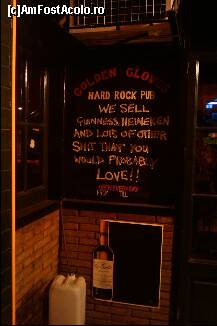 (c)AmFostAcolo.ro
GOLDEN GLOVES
HARD ROCK PUB
WE SELL
GUINNESS, HEINEKEN
AND LOTS OF OTHER
SHIT THAT YOU
WOULD PROBABLY
LOVE!!
OPEN EVERYDAY